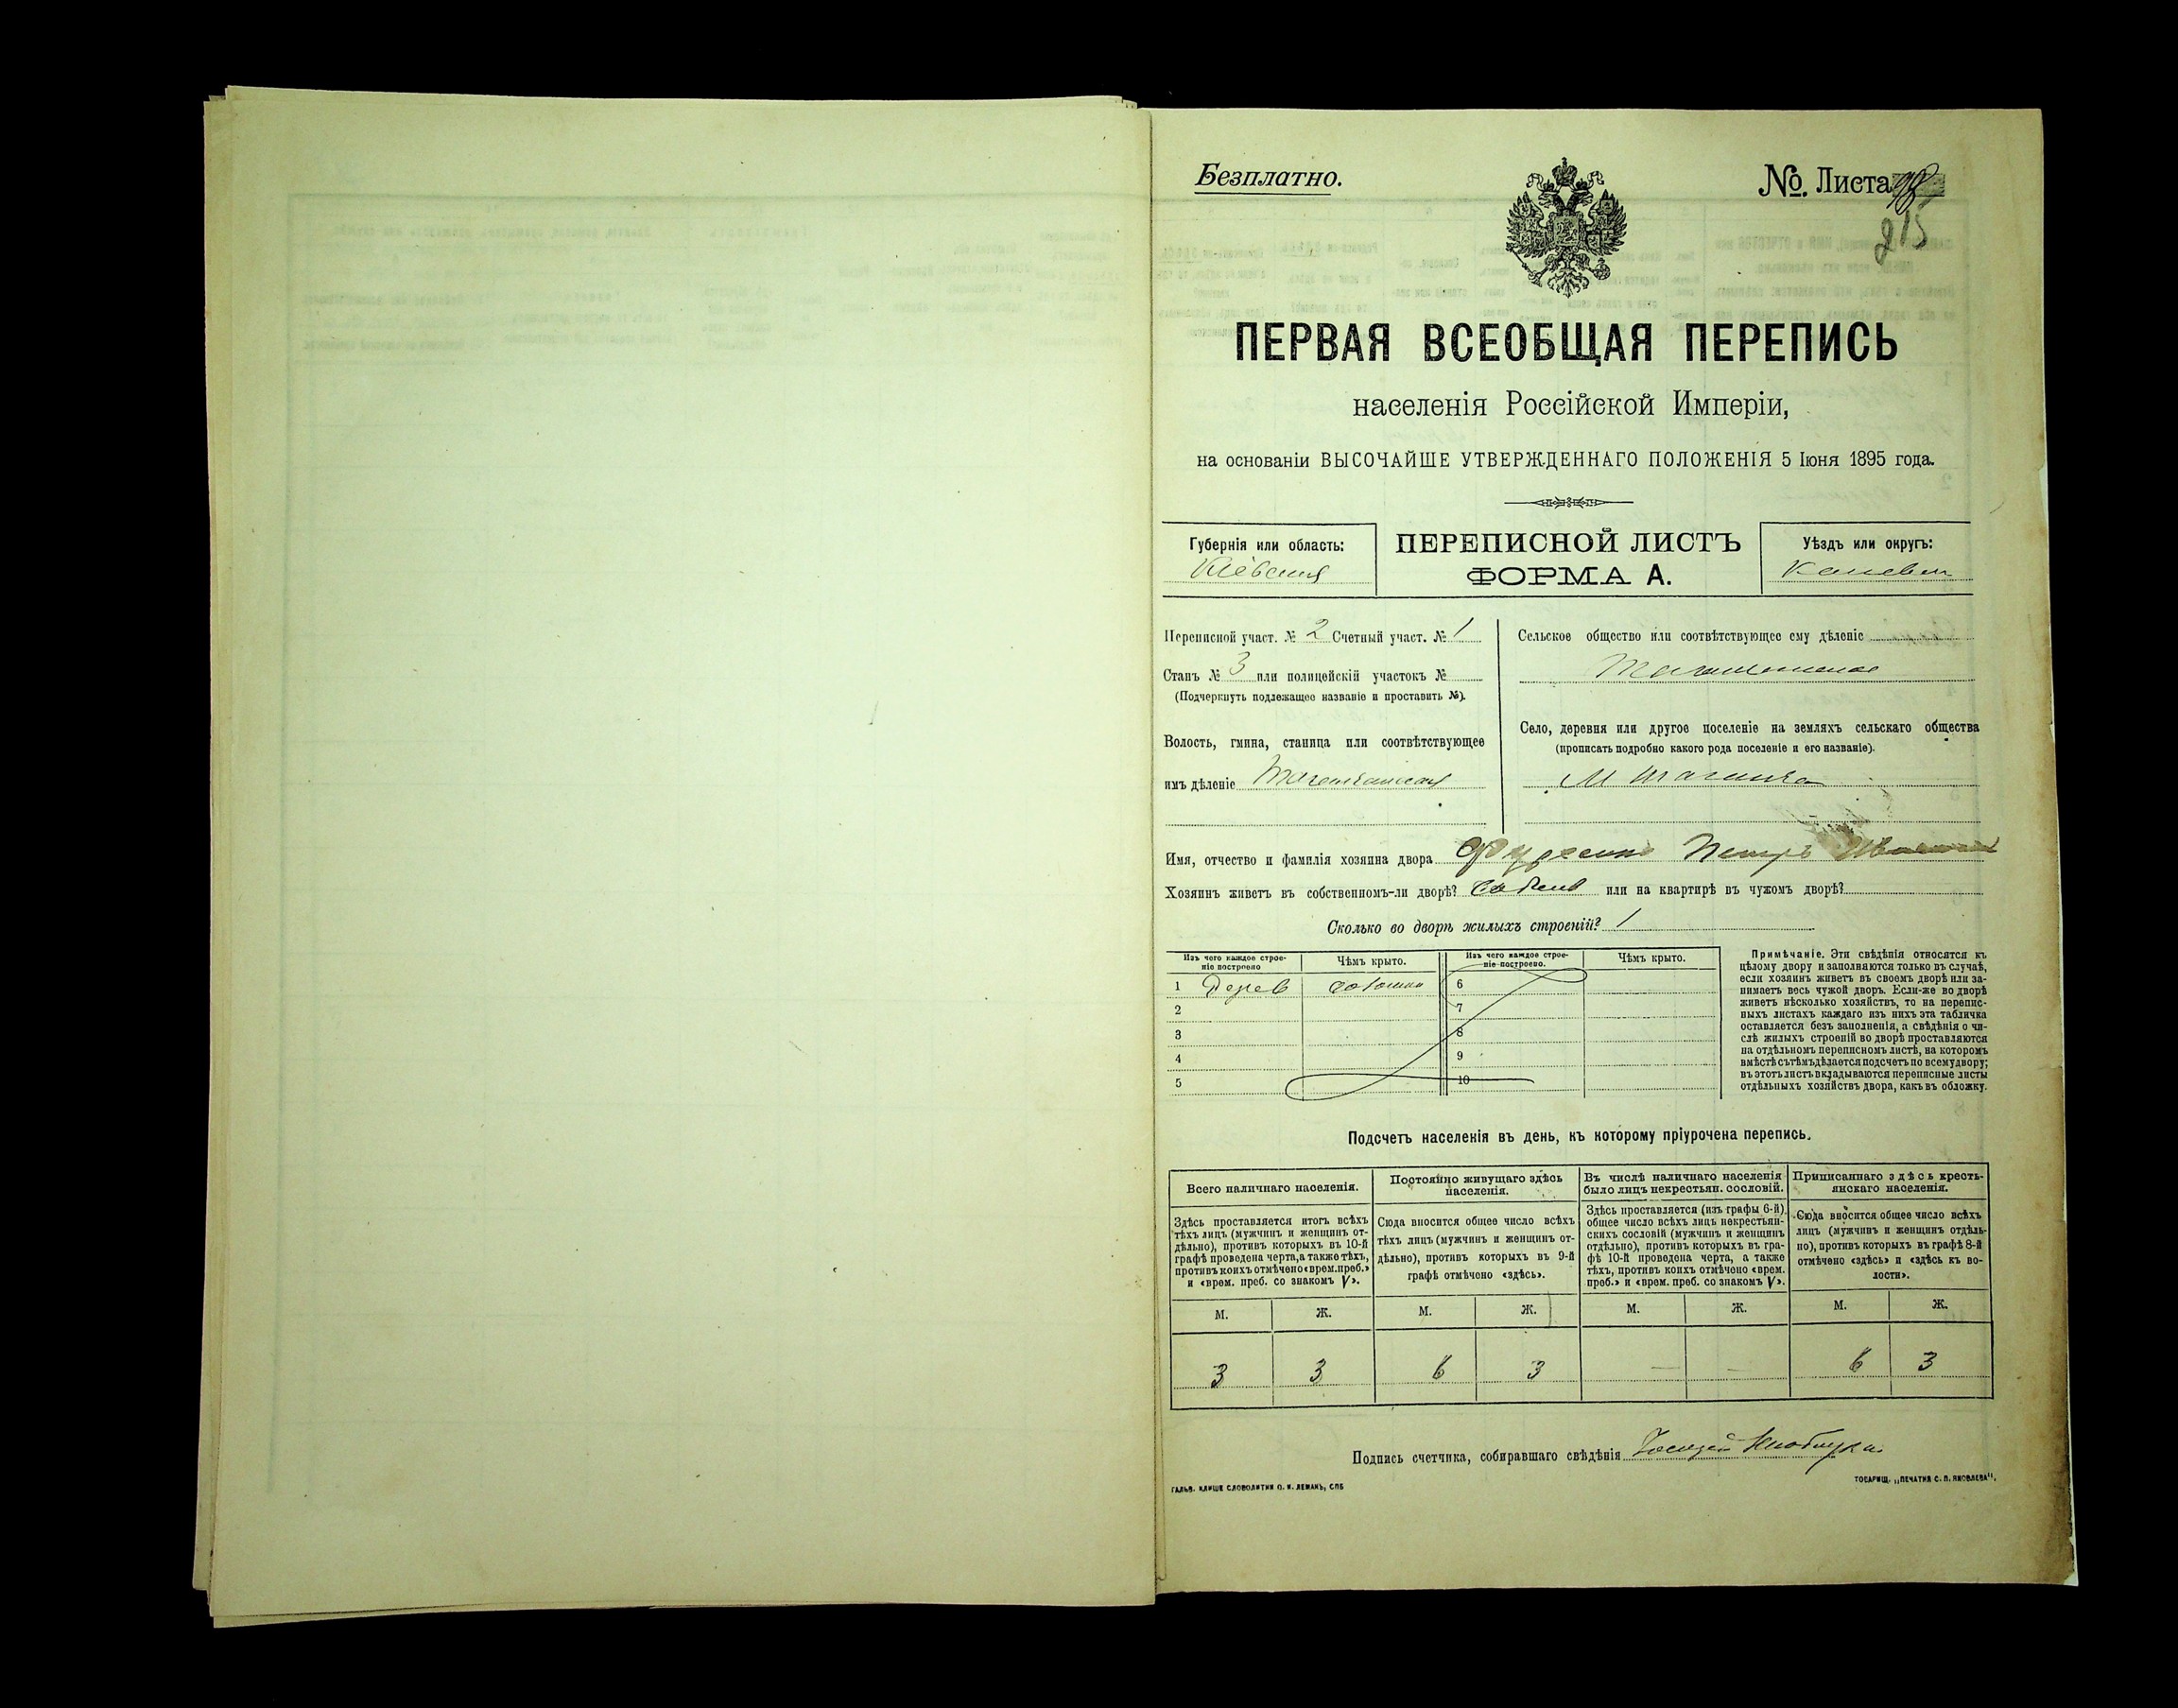 Безплатно.
№. Листа 98
215
ПЕРВАЯ ВСЕОБЩАЯ ПЕРЕПИСЬ
населенія Россійской Имперіи,
на основаніи ВЫСОЧАЙШЕ УТВЕРЖДЕННАГО ПОЛОЖЕНІЯ 5 Іюня 1895 года.
Губернія или область:
Кіевская
ПЕРЕПИСНОЙ ЛИСТЪ
ФОРМА А.
Уѣздъ или округъ:
Каневск
Переписной участ. № 2 Счетный участ. № 1
Станъ № 3 или полицейскій участокъ №
(Подчеркнуть подлежащее названіе и проставить №).
Волость, гмина, станица или соотвѣтствующее
имъ дѣленіе Таганчанская
Сельское общество или соотвѣтствующее ему дѣленіе
Село, деревня или другое поселеніе на земляхъ сельскаго общества
(прописать подробно какого рода поселеніе и его названіе).
М Таганча
Имя, отчество и фамилія хозяина двора Петръ
Хозяинъ живетъ въ собственномъ-ли дворѣ? или на квартирѣ въ чужомъ дворѣ?
Сколько во дворѣ жилыхъ строеній? 1
Изъ чего каждое строе-
ніе построено
Чѣмъ крыто.
Изъ чего каждое строе-
ніе построено.
Чѣмъ крыто.
1 Дерев соломи 6
2 7
3 8
4 9
5 10
Примѣчаніе. Эти свѣдѣнія относятся къ
цѣлому двору и заполняются только въ случаѣ,
если хозяинъ живетъ въ своемъ дворѣ или за-
нимаетъ весь чужой дворъ. Если-же во дворѣ
живетъ нѣсколько хозяйствъ, то на перепис-
ныхъ листахъ каждаго изъ нихъ эта табличка
оставляется безъ заполненія, а свѣдѣнія о чи-
слѣ жилыхъ строеній во дворѣ проставляются
на отдѣльномъ переписномъ листѣ, на которомъ
вмѣстѣ съ тѣмъ дѣлается подсчетъ по всему двору;
въ этотъ листъ вкладываются переписные листы
отдѣльныхъ хозяйствъ двора, какъ въ обложку.
Подсчетъ населенія въ день, къ которому пріурочена перепись.
Всего наличнаго населенія.
Здѣсь проставляется итогъ всѣхъ
тѣхъ лицъ (мужчинъ и женщинъ от-
дѣльно), противъ которыхъ въ 10-й
графѣ проведена черта, а также тѣхъ,
противъ коихъ отмѣчено «врем. преб.»
и «врем. преб. со знакомъ V».
Постоянно живущаго здѣсь
населенія.
Сюда вносится общее число всѣхъ
тѣхъ лицъ (мужчинъ и женщинъ от-
дѣльно), противъ которыхъ въ 9-й
графѣ отмѣчено «здѣсь».
Въ числѣ наличнаго населенія
было лицъ некрестьян. сословій.
Здѣсь проставляется (изъ графы 6-й)
общее число всѣхъ лицъ некрестьян-
скихъ сословій (мужчинъ и женщинъ
отдѣльно), противъ которыхъ въ гра-
фѣ 10-й проведена черта, а также
тѣхъ, противъ коихъ отмѣчено «врем.
преб.» и «врем. преб. со знакомъ V».
Приписаннаго здѣсь кресть-
янскаго населенія.
Сюда вносится общее число всѣхъ
лицъ (мужчинъ и женщинъ отдѣль-
но), противъ которыхъ въ графѣ 8-й
отмѣчено «здѣсь» и «здѣсь къ во-
лости».
М. Ж. М. Ж. М. Ж. М. Ж.
3 3 6 3 — — 6 3
Подпись счетчика, собиравшаго свѣдѣнія
ГАЛЬВ. КЛИШЕ СЛОВОЛИТНИ О. И. ЛЕМАНЪ, СПБ
ТОВАРИЩ. „ПЕЧАТНЯ С. П. ЯКОВЛЕВА".